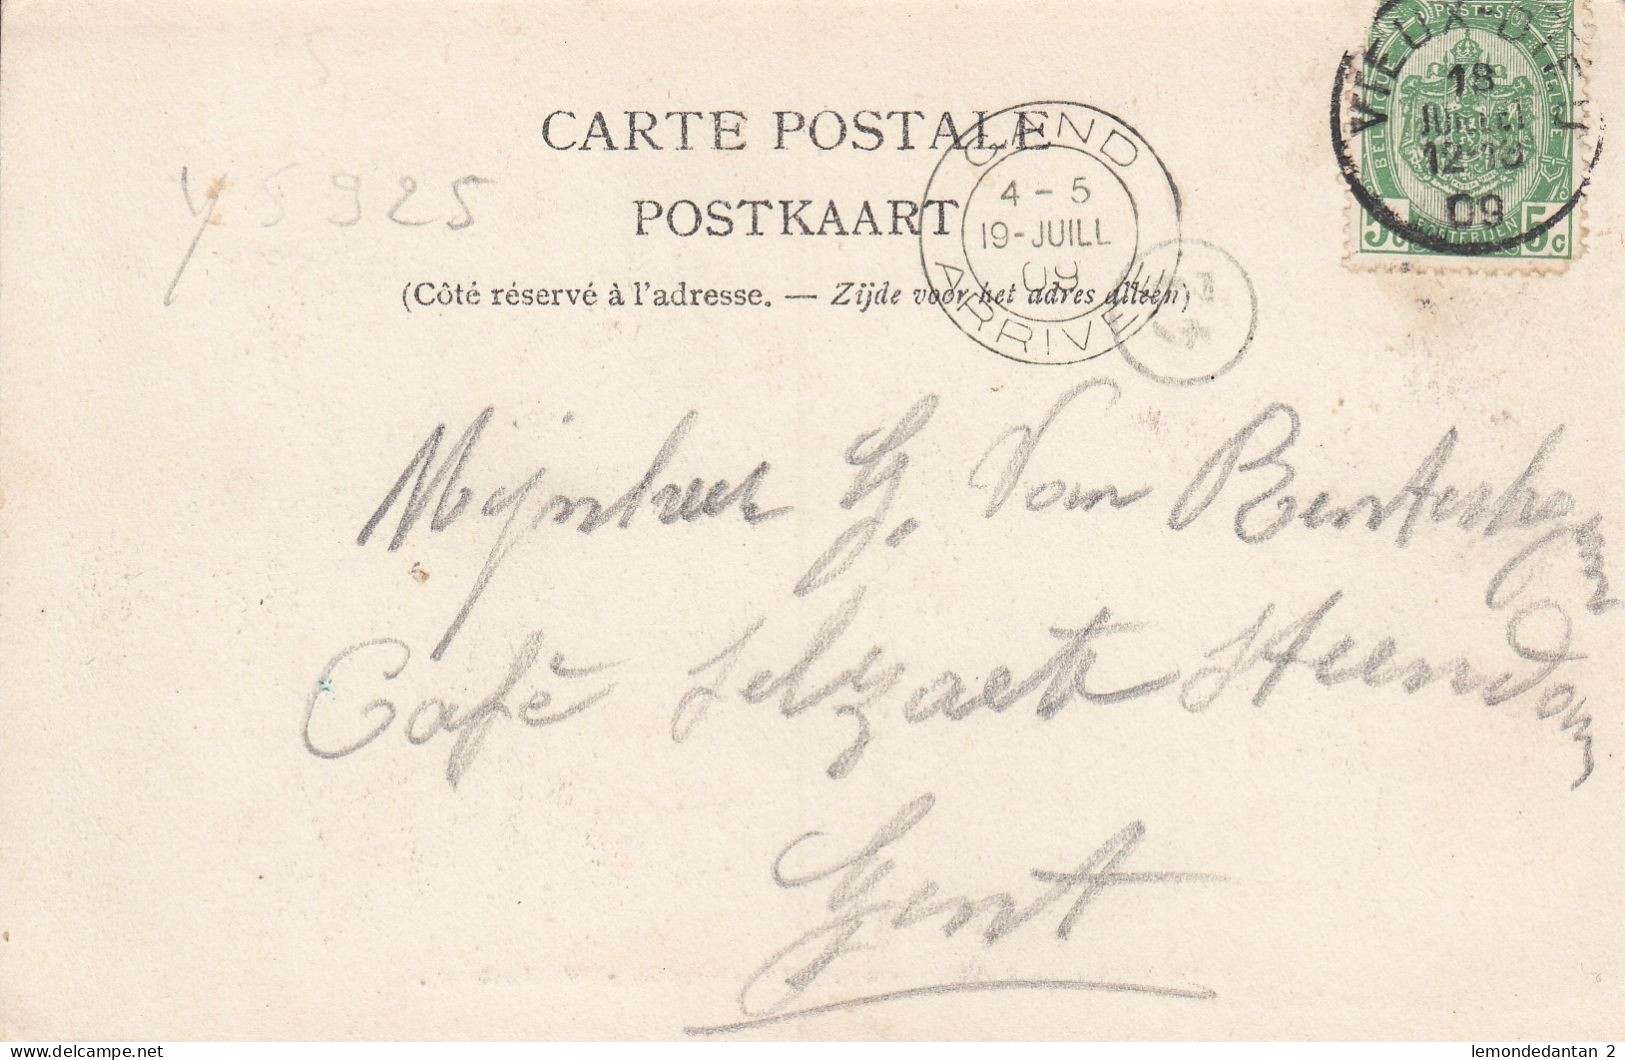 POSTES
BELGIQUE
5c 5c
VIEUX-DIEU
18
JUILLET
12-13
09
CARTE POSTALE
POSTKAART
(Côté réservé à l'adresse. — Zijde voor het adres alléén)
GAND
4 - 5
19-JUILL
09
ARRIVEE
45925
Mijnheer G. Van
Café Selzaete Steendam
Gent
lemondedantan 2
delcampe.net